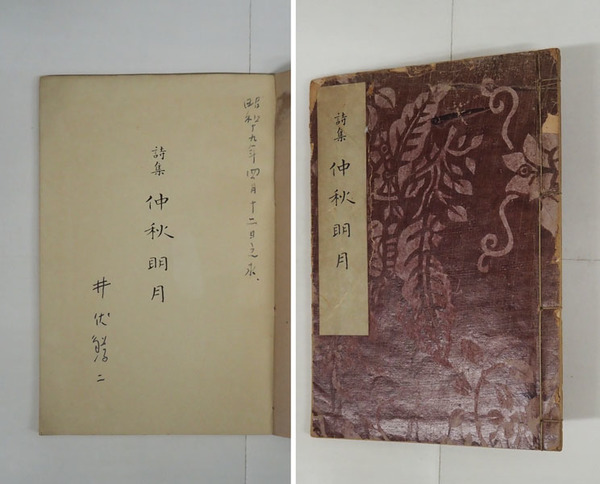 昭和十九年四月十二日之求.
詩集 仲秋明月
井伏鱒二
詩集 仲秋明月